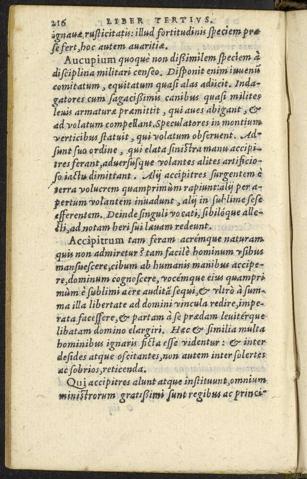 216 LIBER TERTIVS.
ignauæ, rusticitatis: illud fortitudinis speciem præ
se fert, hoc autem auaritiæ.
Aucupium quoque non dißimilem speciem à
disciplina militari censeo. Disponit enim iuuenis
comitatum, equitatum quasi alas adiicit. Inda-
gatores cum sagacißimis canibus quasi milites
leuis armaturæ præmittit, qui aues abigant, &
ad volatum compellant. Speculatores in montium
verticibus statuit, qui volatum obseruent. Ad-
sunt suo ordine, qui elata sinistra manu accipi-
tres ferant, aduersúsque volantes alites artificio-
so iactu dimittant. Alij accipitres surgentem è
terra volucrem quamprimùm rapiunt: alij per a-
pertum volantem inuadunt, alij in sublime sese
efferentem. Deinde singuli vocati, sibilóque alle-
cti, ad notam heri sui læuam redeunt.
Accipitrum tam feram acrémque naturam
quis non admiretur? tam facilè hominum vsibus
mansuescere, cibum ab humanis manibus accipe-
re, dominum cognoscere, vocémque eius quampri
mùm è sublimi aëre auditā sequi, & vltrò à sum-
ma illa libertate ad domini vincula redire, impe-
rata facessere, & partam à se prædam leuitérque
libatam domino elargiri. Hæc & similia multa
hominibus ignaris ficta esse videntur: & inter
desides atque oscitantes, non autem inter solertes
ac sobrios, reticenda.
Qui accipitres alunt atque instituunt, omnium
ministrorum gratißimi sunt regibus ac princi-